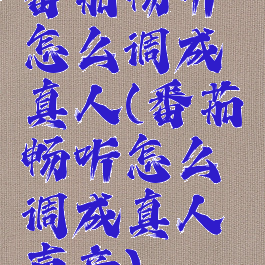 番茄畅听
怎么调成
真人(番茄
畅听怎么
调成真人
声音)